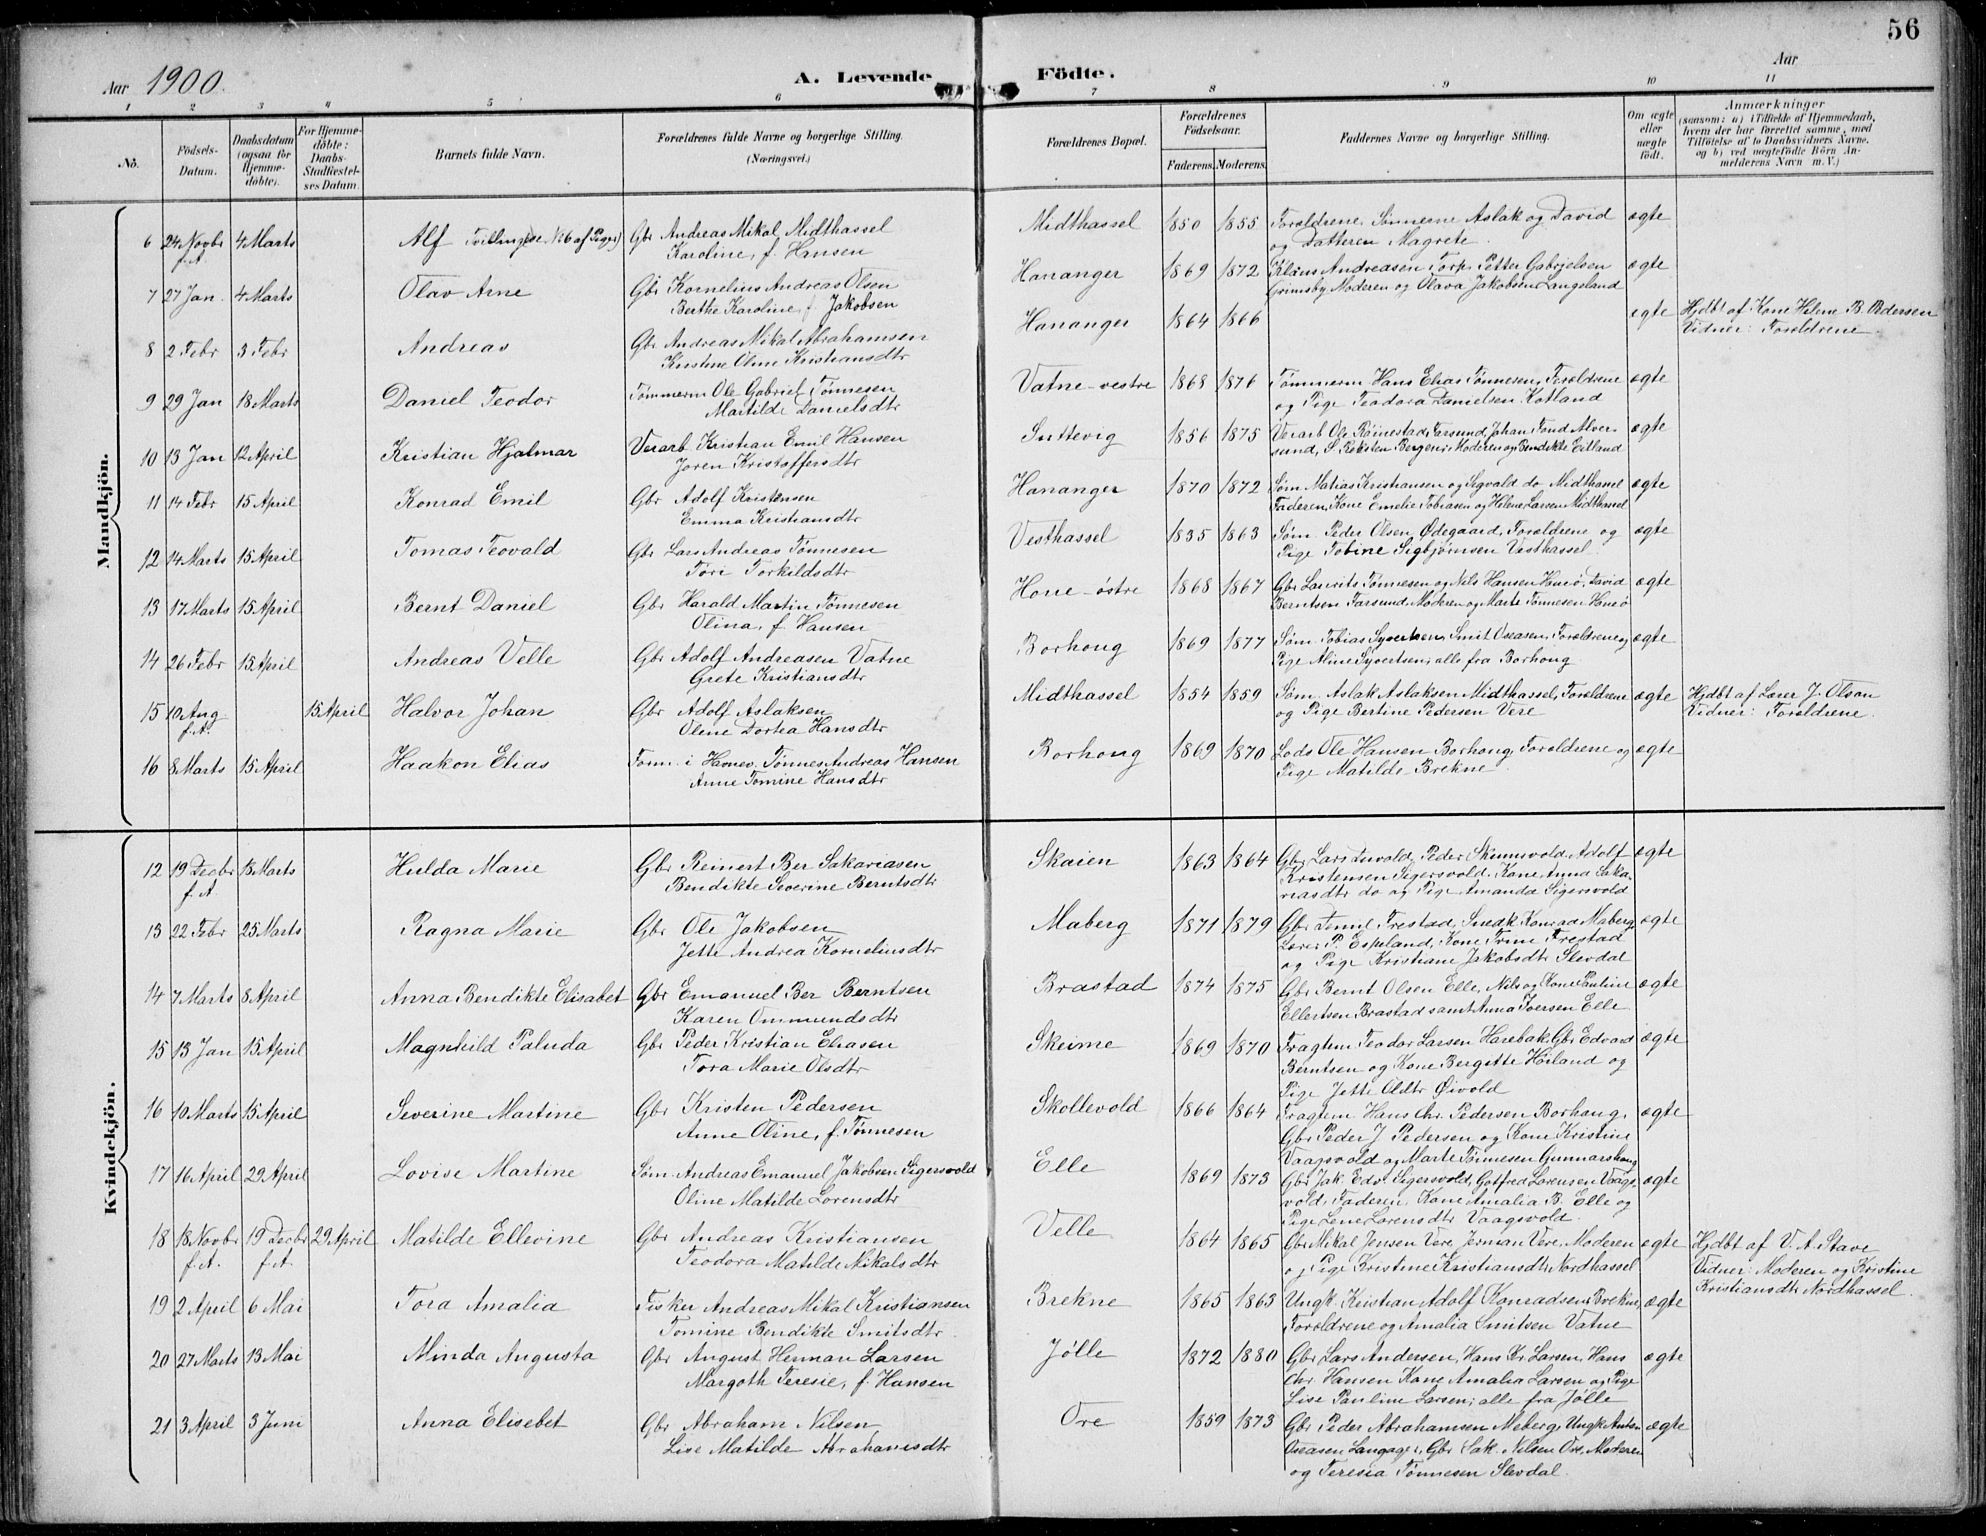 56
Aar 1900.
A. Levende Födte.
Aar
1 2 3 4 5 6 7 8 9 10 11
No.
Födsels-Datum.
Daabsdatum (ogsaa for Hjemmedöbte).
For Hjemmedöbte: Daabs-Stadfæstelses Datum.
Barnets fulde Navn.
Forældrenes fulde Navne og borgerlige Stilling. (Næringsvei.)
Forældrenes Bopæl.
Forældrenes Födselsaar.
Faderens. Moderens.
Faddernes Navne og borgerlige Stilling.
Om ægte eller uægte födt.
Anmærkninger
(saasom: a) i Tilfælde af Hjemmedaab, hvem der har forrettet samme, med Tilföielse af to Daabsvidners Navne, og b) ved uægtefödte Börn Anmelderens Navn m. V.)
Mandkjön.
6 24 Novbr f.A. 4 Marts Alf Tvillinger (se No 6 af Piger) Gbr Andreas Mikal Midthassel Karoline, f. Hansen Midthassel 1850 1855 Forældrene, Sønnerne Aslak og David og Datteren Magrete. ægte
7 27 Jan. 4 Marts Olav Arne Gbr Kornelius Andreas Olsen Berthe Karoline, f. Jakobsen Hananger 1869 1872 Klaus Andreasen Torp, Petter Gabrielsen Grimsby, Moderen og Olava Jakobsen Langeland ægte
8 2 Febr 3 Febr Andreas Gbr Andreas Mikal Abrahamsen Kirstine Oline Kristiansdtr Hananger 1864 1866 ægte Hjdbt af Kone Helene B. Pedersen Vidner: Forældrene.
9 29 Jan 18 Marts Daniel Teodor Tømmerm Ole Gabriel Tønnesen Martilde Danielsdtr Vatne-vestre 1868 1876 Tømmerm Hans Elias Tønnesen, Forældrene og Pige Teodora Danielsen Kotland ægte
10 13 Jan 12 April Kristian Hjalmar Verarb Kristian Emil Hansen Joren Kristoffersdtr Luttevig 1856 1875 Verarb Ole Røinestad, Farsund, Johan Tond Alversund, S. Reksten Bergen, Moderen og Bendikte Eitland ægte
11 14 Febr 15 April Konrad Emil Gbr Adolf Kristensen Emma Kristiansdtr Hananger 1870 1872 Søm Matias Kristiansen og Sigvald do Midthassel Faderen, Kone Emelie Tobiasen og Helene Larsen Midthassel ægte
12 14 Marts 15 April Tomas Teovald Gbr Lars Andreas Tønnesen Tori Torkildsdtr Vesthassel 1835 1863 Søm Peder Olsen Ødegaard, Forældrene og Pige Tobine Sigbjørnsen Vesthassel ægte
13 17 Marts 15 April Bernt Daniel Gbr Harald Martin Tønnesen Olina, f. Hansen Hone-østre 1868 1867 Gbr Laurits Tønnesen og Nils Hansen Hone ø, David Berntsen Farsund, Moderen og Marte Tønnesen Hone ø ægte
14 26 Febr 15 April Andreas Velle Gbr Adolf Andreasen Vatne Grete Kristiansdtr Borhoug 1869 1877 Søm Tobias Syvertsen, Smit Oseasen, Forældrene og Pige Aline Syvertsen, alle fra Borhoug ægte
15 10 Aug f.A. 15 April Halvor Johan Gbr Adolf Aslaksen Oline Dortea Hansdtr Midthassel 1854 1859 Søm Aslak Aslaksen Midthassel, Forældrene og Pige Bertine Pedersen Vere ægte Hjdbt af Lærer J. Olsen Vidner: Forældrene.
16 8 Marts 15 April Haakon Elias Form. i Havnev. Tønnes Andreas Hansen Anne Tomine Hansdtr Borhoug 1869 1870 Lods Ole Hansen Borhoug, Forældrene og Pige Matilde Brekne ægte
Kvindekjön.
12 19 Decbr f.A. 18 Marts Hulda Marie Gbr Reinert Ber Sakariasen Bendikte Severine Berntsdtr Skaien 1863 1864 Gbr Lars Peder Skeimsvold, Adolf Kristensen Sigersvold, Kone Anna Sakariasdtr do og Pige Amanda Sigersvold ægte
13 22 Febr 25 Marts Ragna Marie Gbr Ole Jakobsen Jette Andrea Korneliusdtr Maberg 1871 1879 Gbr Emil Frestad, Snedk Konrad Maberg, Lærer P. Espeland, Kone Trine Frestad og Pige Kristiane Jakobsdtr Slevdal ægte
14 7 Marts 8 April Anna Bendikte Elisabet Gbr Emanuel Ber Berntsen Karen Ommundsdtr Brastad 1874 1875 Gbr Bernt Olsen Elle, Nils og Kone Pauline Ellertsen Brastad samt Anna Iversen Elle ægte
15 13 Jan 15 April Magnhild Paluda Gbr Peder Kristian Eliasen Tora Marie Olsdtr Skeime 1869 1870 Fragtem Teodor Larsen Harebak, Gbr Edvard Berntsen og Kone Bergitte Høiland og Pige Jette Oldtr Øivold ægte
16 10 Marts 15 April Severine Martine Gbr Kristen Pedersen Anne Oline, f. Tønnesen Skollevold 1866 1864 Fragtem Hans Chr. Pedersen Borhaug, Gbr Peder J. Pedersen og Kone Kristine Vaagsvold og Marte Tønnesen Gunnarshoug ægte
17 16 April 29 April Lovise Martine Søm Andreas Emanuel Jakobsen Sigersvold Oline Matilde Lorensdtr Elle 1869 1873 Gbr Jak. Edv. Sigersvold, Gotfred Lorensen Vaagsvold, Faderen, Kone Amalia B. Elle og Pige Lene Lorensdtr Vaagsvold. ægte
18 18 Novbr f.A. 19 Decbr f.A. 29 April Matilde Ellevine Gbr Andreas Kristiansen Teodora Matilde Nikalsdtr Velle 1864 1865 Gbr Mikal Jensen Vere, Jerman Vere, Moderen og Pige Kristine Kristiansdtr Nordhassel ægte Hjdbt af V. A. Stave Vidner: Moderen og Kristine Kristiansdtr Nordhassel.
19 2 April 6 Mai Tora Amalia Fisker Andreas Mikal Kristiansen Tomine Bendikte Smitsdtr Brekne 1865 1863 Ungk. Kristian Adolf Konradsen Brekne, Forældrene og Amalia Smitsen Vatne ægte
20 27 Marts 13 Mai Minda Augusta Gbr August Herman Larsen Margoth Teresie, f. Hansen Jølle 1872 1880 Gbr Lars Andersen, Hans Kr Larsen, Hans Chr. Hansen Kone Amalia Larsen og Pige Lise Pauline Larsen; alle fra Jølle ægte
21 3 April 3 Juni Anna Elisebet Gbr Abraham Nilsen Lise Matilde Abrahamsdtr Ore 1859 1873 Gbr Peder Abrahamsen Meberg, Ungk Anton Oseasen Langager, Gbr Sak. Nilsen Ore, Moderen og Teresia Tønnesen Slevdal. ægte